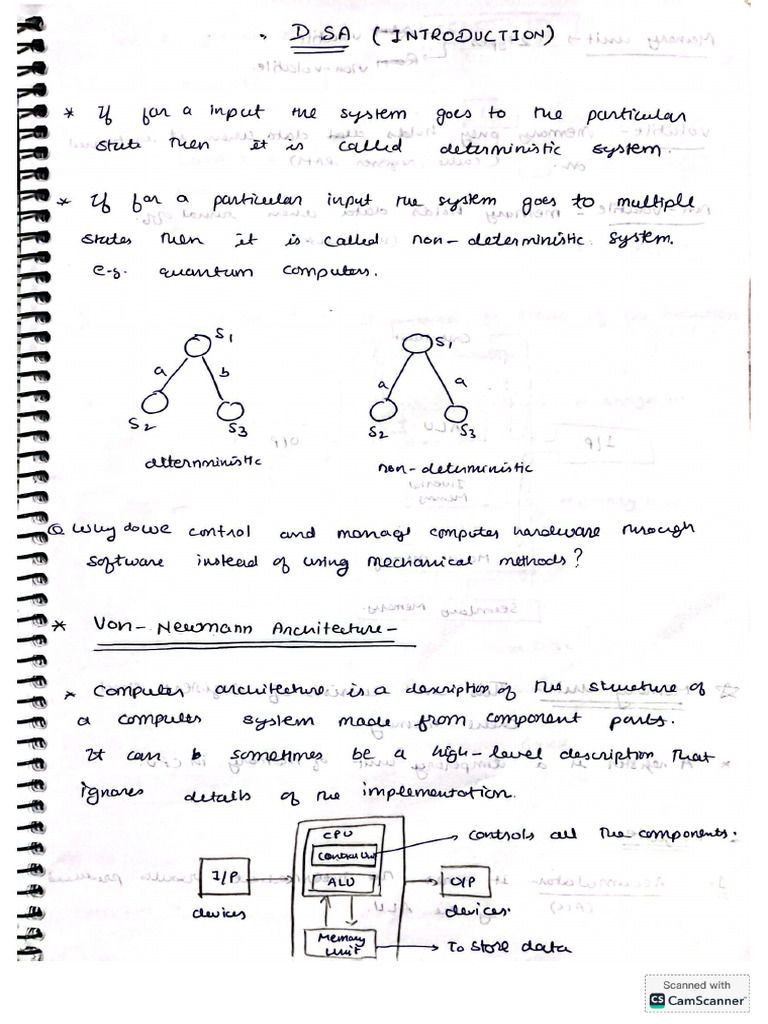 DSA (INTRODUCTION)
* If for a input the system goes to the particular
state then it is called deterministic system.
* If for a particular input the system goes to multiple
states then it is called non-deterministic system.
e.g. quantum computers.
S1
a b
S2 S3
deterministic
S1
a a
S2 S3
non-deterministic
Q Why do we control and manage computer hardware through
software instead of using mechanical methods?
* Von-Newmann Architecture-
* Computer architecture is a description of the structure of
a computer system made from component parts.
It can b sometimes be a high-level description that
ignores details of the implementation.
CPU
Control Unit
ALU
Memory
Unit
I/P
devices
O/P
devices.
→ controls all the components.
→ To store data
Scanned with
CS CamScanner